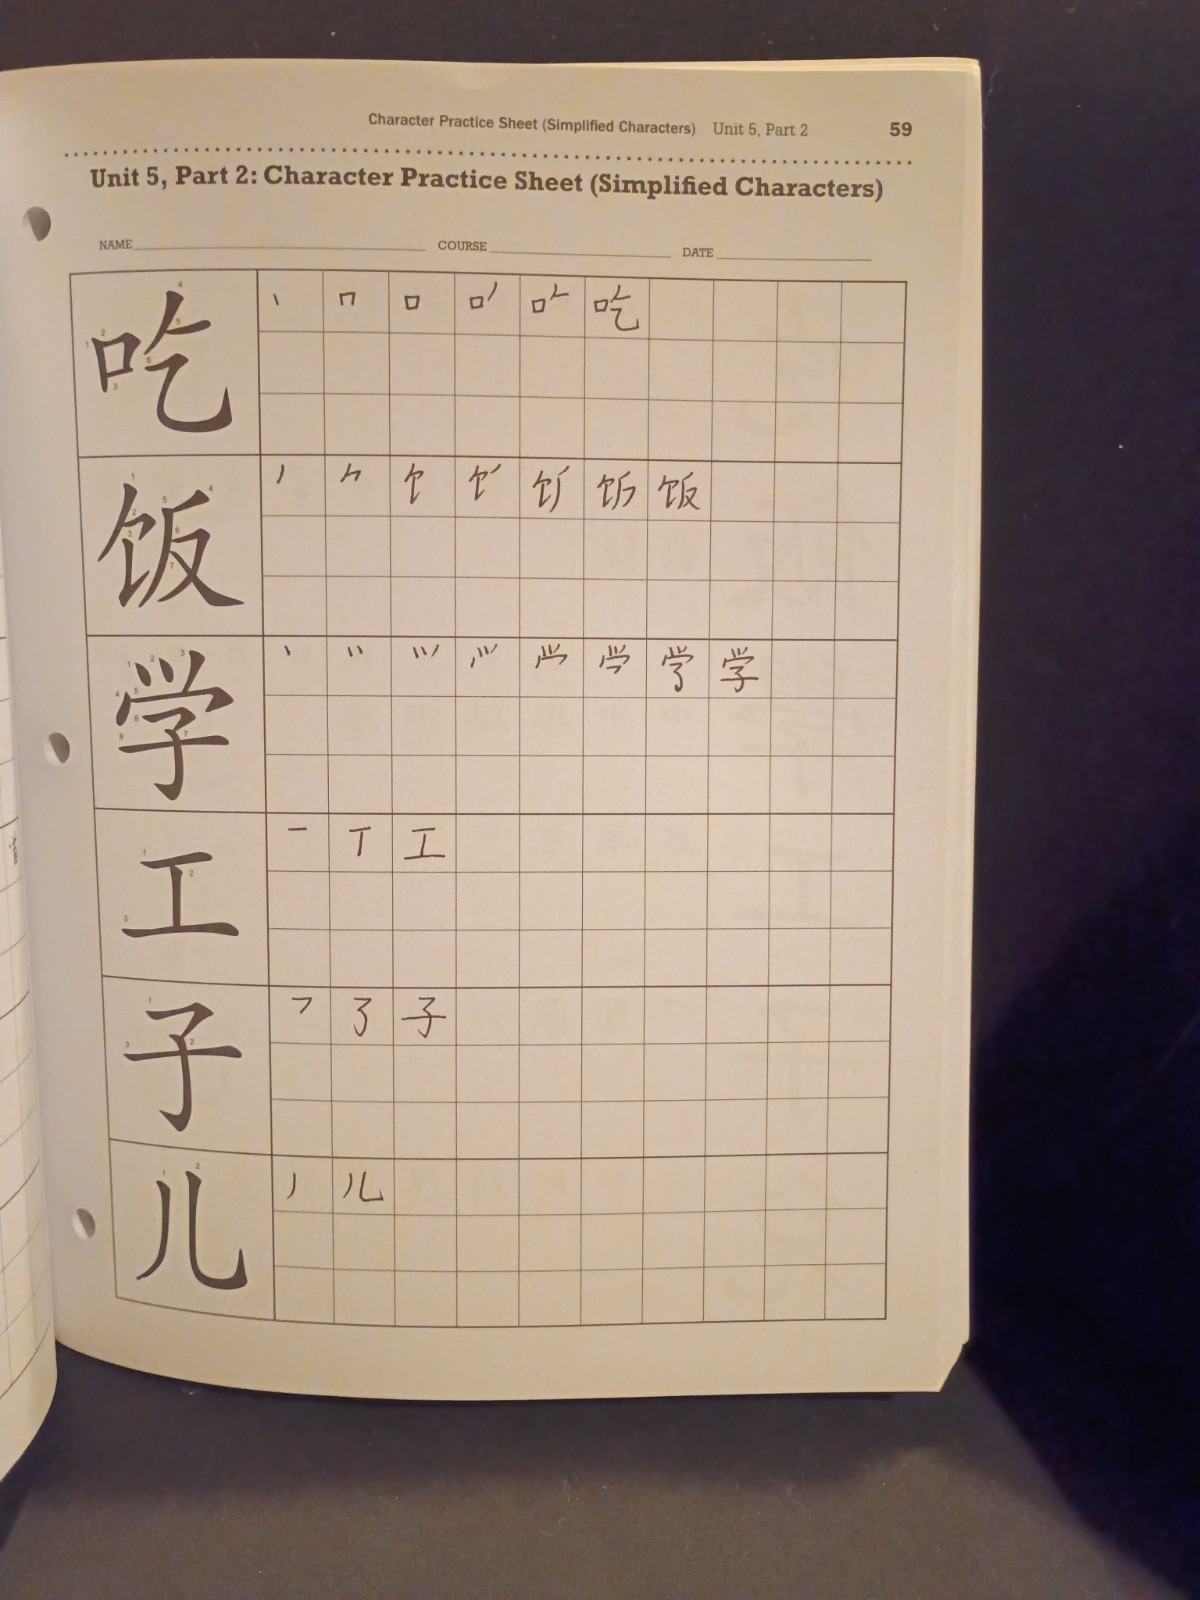 Character Practice Sheet (Simplified Characters) Unit 5, Part 2 59
Unit 5, Part 2: Character Practice Sheet (Simplified Characters)
NAME COURSE DATE
吃 吃
饭 饭
学 学
工 工
子 子
儿 儿